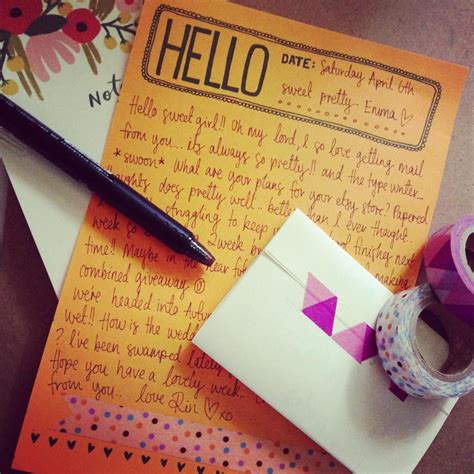 Not
HELLO
DATE: Saturday April 6th
sweet pretty Emma ♡
Hello sweet girl!! Oh my lord, I so love getting mail
from you... its always so pretty!! and the type writer..
*swoon* What are your plans for your etsy store? Papered
thoughts does pretty well.. better than I ever thought..
struggling to keep
week so 2 week br finishing next
time!! Maybe in the near fu making
combined giveaway ☺
we're headed into
wet!! How is the wedd
? I've been swamped lately
Hope you have a lovely week.. C
from you.. love Rin ♡xo